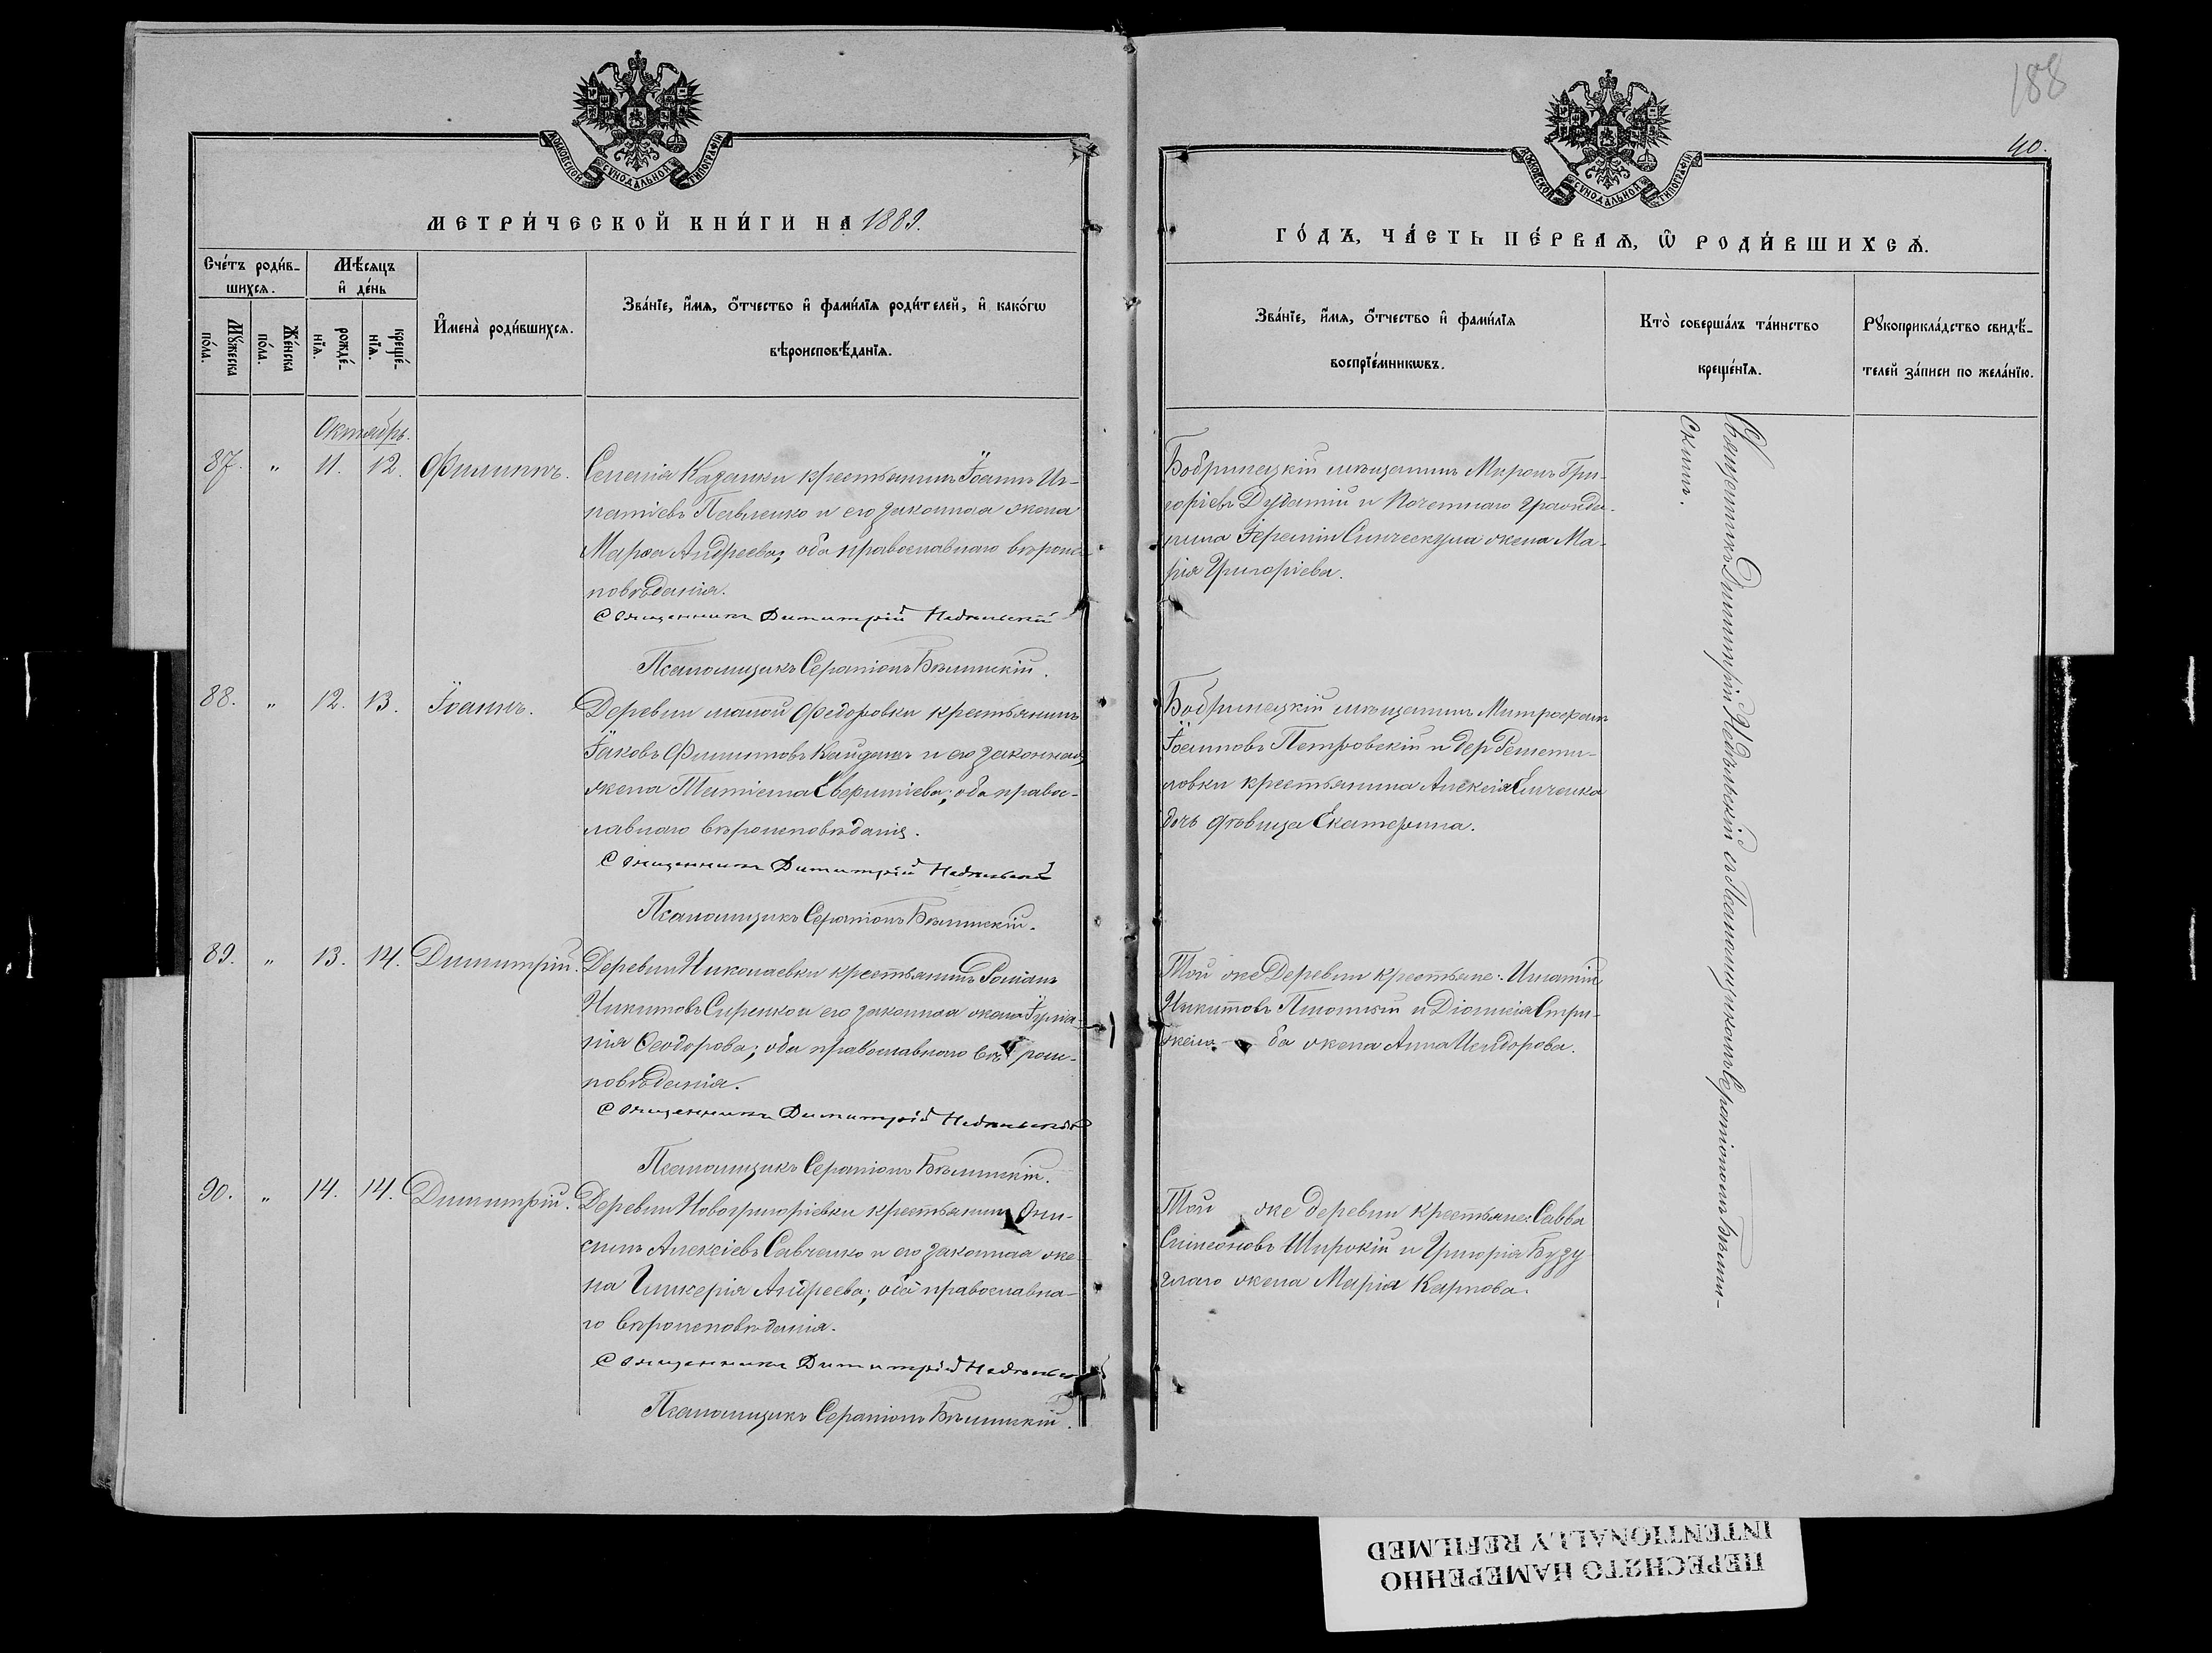 МОСКОВСКОЙ СѴНОДАЛЬНОЙ ТИПОГРАФІИ
МЕТРИ́ЧЕСКОЙ КНИ́ГИ НА 1889.
Сче́тъ роди́в-
шихсѧ.
Мꙋ́жеска
по́ла.
Же́нска
по́ла.
Мѣ́сѧцъ
и҆ де́нь
рожде́-
нїѧ.
креще́-
нїѧ.
И҆мена̀ роди́вшихсѧ.
Зва́нїе, и҆́мѧ, ѻ҆́тчество и҆ фами́лїѧ роди́телей, и҆ како́гѡ
вѣроисповѣ́данїѧ.
Октябрь.
87. " 11. 12. Филиппъ.
Селенія Казанки крестьянинъ Іоаннъ Иг-
натіевъ Павленко и его законная жена
Марѳа Андреева; оба православнаго вѣроис-
повѣданія.
Священникъ Димитрій Недѣльскій
Псаломщикъ Серапіонъ Бѣлинскій.
88. " 12. 13. Іоаннъ.
Деревни малой Федоровки крестьянинъ
Іаковъ Филиповъ Кайданъ и его законная
жена Татіана Еверитіева; оба правос-
лавнаго вѣроисповѣданія.
Священникъ Димитрій Недѣльскій
Псаломщикъ Серапіонъ Бѣлинскій.
89. " 13. 14. Димитрій.
Деревни Николаевки крестьянинъ Романъ
Никитовъ Сиренко и его законная жена Іуліа-
нія Ѳеодорова; оба православнаго вѣ роис-
повѣданія.
Священникъ Димитрій Недѣльскій
Псаломщикъ Серапіонъ Бѣлинскій.
90. " 14. 14. Димитрій.
Деревни Новогригоріевки крестьянинъ Они-
симъ Алексіевъ Савченко и его законная же-
на Гликерія Андреева; оба православна-
го вѣроисповѣданія.
Священникъ Димитрій Недѣльскій
Псаломщикъ Серапіонъ Бѣлинскій.
188
40.
МОСКОВСКОЙ СѴНОДАЛЬНОЙ ТИПОГРАФІИ
ГО́ДЪ, ЧА́СТЬ ПЕ́РВАѦ, Ѽ РОДИ́ВШИХСѦ.
Зва́нїе, и҆́мѧ, ѻ҆́тчество и҆ фами́лїѧ
воспрїе́мникѡвъ.
Кто̀ соверша́лъ та́инство
креще́нїѧ.
Рꙋкоприкла́дство свидѣ́-
телей за́писи по жела́нїю.
Бобринецкій мѣщанинъ Миронъ Гри-
горіевъ и Почетнаго Гражда-
нина Іереміи жена Ма-
рія Григоріева.
Бобринецкій мѣщанинъ Митрофанъ
Іоанновъ Петровскій и дер Решети-
ловки крестьянина Алексія
дочь дѣвица Екатерина.
Той же Деревни крестьяне: Игнатій
Никитовъ и Діонисія Стри-
жена ба жена Анна Исидорова.
Той же деревни крестьяне: Савва
Симеоновъ Широкій и Григорія Бузу
глаго жена Марія Карпова.
Священникъ Димитрій Недѣльскій съ Псаломщикомъ Серапіономъ Бѣлин-
скимъ.
ПЕРЕСНЯТО НАМЕРЕННО
INTENTIONALLY REFILMED